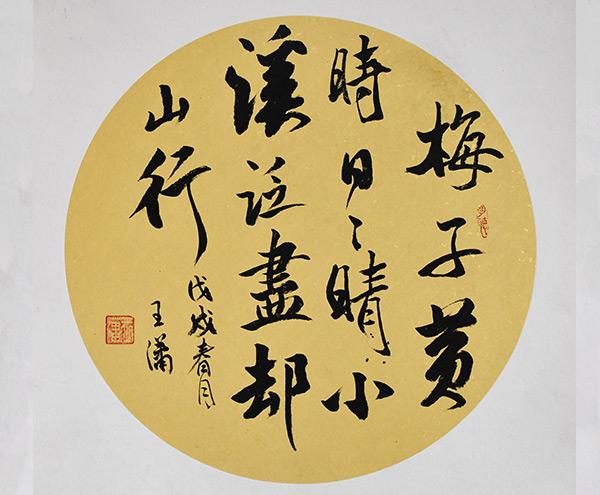 梅子黄
時日〻晴小
溪泛盡却
山行
戊戌春月
王瀟